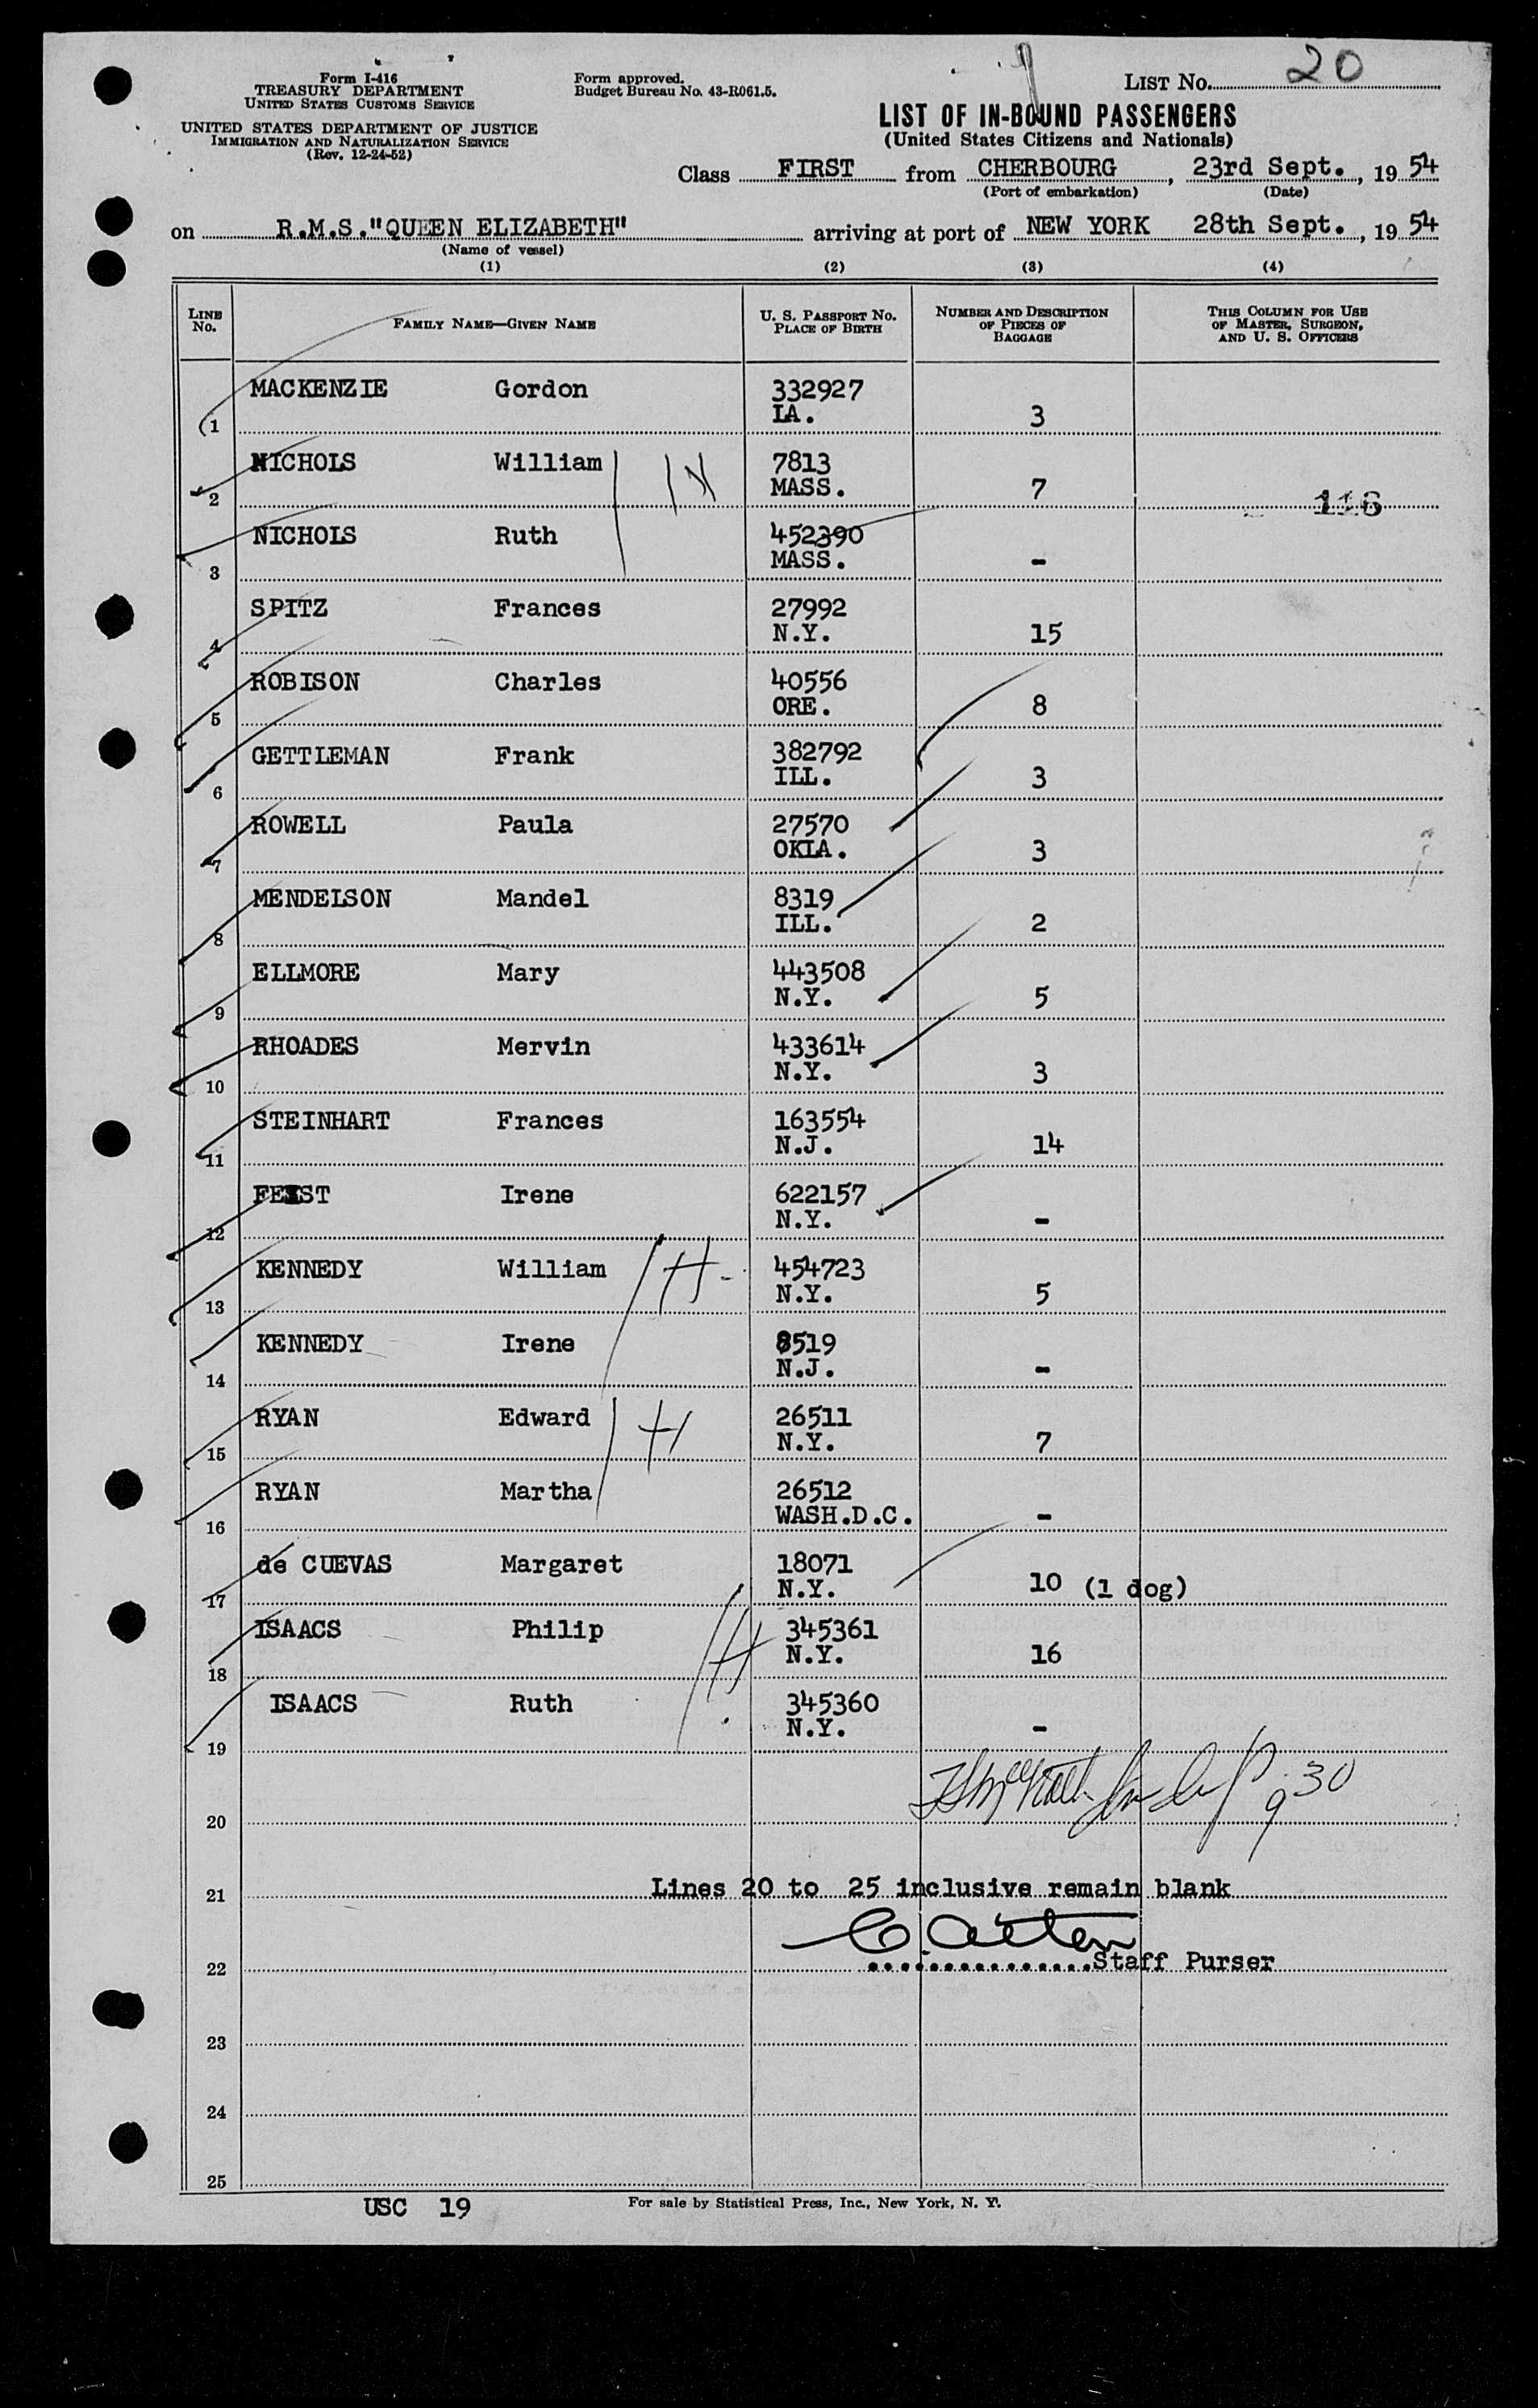 Form I-416
TREASURY DEPARTMENT
UNITED STATES CUSTOMS SERVICE
UNITED STATES DEPARTMENT OF JUSTICE
IMMIGRATION AND NATURALIZATION SERVICE
(Rev. 12-24-52)
Form approved.
Budget Bureau No. 43-R061.5.
LIST No. 20
LIST OF IN-BOUND PASSENGERS
(United States Citizens and Nationals)
Class FIRST from CHERBOURG, 23rd Sept., 19 54
(Port of embarkation) (Date)
on R.M.S. "QUEEN ELIZABETH" arriving at port of NEW YORK 28th Sept., 19 54
(Name of vessel)
(1) (2) (3) (4)
LINE No. FAMILY NAME—GIVEN NAME U. S. PASSPORT No. PLACE OF BIRTH NUMBER AND DESCRIPTION OF PIECES OF BAGGAGE THIS COLUMN FOR USE OF MASTER, SURGEON, AND U. S. OFFICERS
1 MACKENZIE Gordon 332927 IA. 3
2 NICHOLS William H 7813 MASS. 7 116
3 NICHOLS Ruth 452390 MASS. -
4 SPITZ Frances 27992 N.Y. 15
5 ROBISON Charles 40556 ORE. 8
6 GETTLEMAN Frank 382792 ILL. 3
7 ROWELL Paula 27570 OKLA. 3
8 MENDELSON Mandel 8319 ILL. 2
9 ELLMORE Mary 443508 N.Y. 5
10 RHOADES Mervin 433614 N.Y. 3
11 STEINHART Frances 163554 N.J. 14
12 FEIST Irene 622157 N.Y. -
13 KENNEDY William H 454723 N.Y. 5
14 KENNEDY Irene 8519 N.J. -
15 RYAN Edward H 26511 N.Y. 7
16 RYAN Martha 26512 WASH.D.C. -
17 de CUEVAS Margaret 18071 N.Y. 10 (1 dog)
18 ISAACS Philip H 345361 N.Y. 16
19 ISAACS Ruth 345360 N.Y. -
20 9 30
21 Lines 20 to 25 inclusive remain blank
22 ................Staff Purser
23
24
25
USC 19 For sale by Statistical Press, Inc., New York, N. Y.